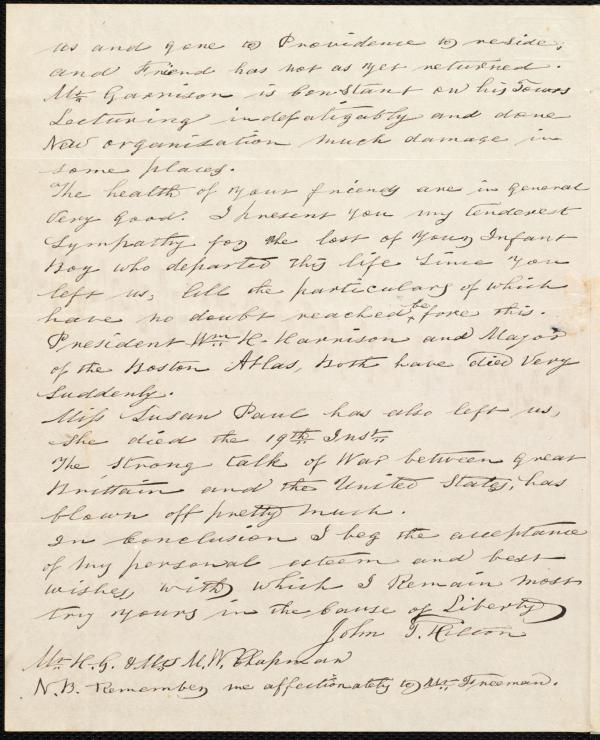 us and gone to Providence to reside,
and Friend has not as yet returned.
Mr. Garrison is Constant on his Tours
Lecturing indefatigably and done
New organisation much damage in
some places.
The health of your friends are in general
Very good. I present you my tenderest
Sympathy for the lost of your Infant
Boy who departed this life Since you
left us, all the particulars of which
have no doubt reached before this.
President Wm. H. Harrison and Major
of the Boston Atlas, Both have died Very
Suddenly.
Miss Susan Paul has also left us,
She died the 19th Inst.
The strong talk of War between great
Brittain and the United States, has
blown off pretty much.
In Conclusion I beg the acceptance
of my personal esteem and best
wishes, with which I Remain most
try yours in the Cause of Liberty
John T. Hilton
Mr. H. G. & Mrs M. W. Chapman
N.B. Remember me affectionately to Mr. Freeman.